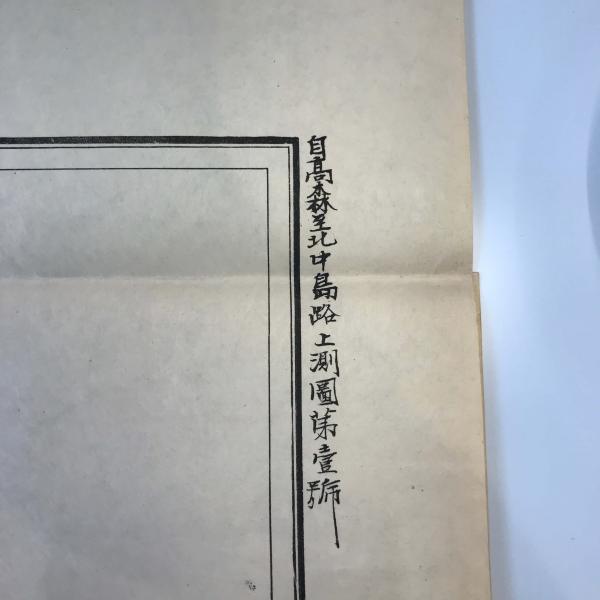 自高森至北中島路上測圖第壹號